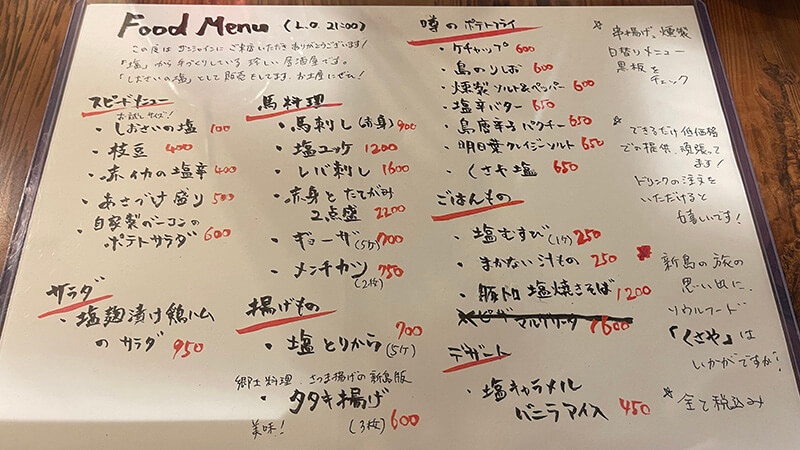 Food Menu (L.O. 21:00)
この度はサンシャインにご来店いただきありがとうございます!
「塩」から手づくりしている珍しい居酒屋です。
「しおさいの塩」として販売もしてます。お土産にぜひ!
スピードメニュー
お試しサイズ!
・しおさいの塩 100
・枝豆 400
・赤イカの塩辛 400
・あさづけ盛り 500
・自家製ベーコンの
ポテトサラダ 600
サラダ
・塩麹漬け鶏ハム
のサラダ 950
馬料理
・馬刺し(赤身) 900
・塩ユッケ 1200
・レバ刺し 1600
・赤身とたてがみ
2点盛 2200
・ギョーザ(5ケ) 700
・メンチカツ 750
(2枚)
揚げもの
・塩とりから 700
(5ケ)
郷土料理 さつま揚げの新島版
・タタキ揚げ
美味! (3枚) 600
噂のポテトフライ
・ケチャップ 600
・島のりしお 600
・燻製ソルト&ペッパー 600
・塩辛バター 650
・島唐辛子パクチー 650
・明日葉クレイジーソルト 650
・くさや塩 650
ごはんもの
・塩むすび(1ケ) 250
・まかない汁もの 250
・豚トロ塩焼きそば 1200
・ピザ マルゲリータ 1600
デザート
・塩キャラメル
バニラアイス 450
※串揚げ、燻製
日替りメニュー
黒板を
チェック
※できるだけ低価格
での提供、頑張って
ます!
ドリンクの注文を
いただけると
嬉しいです!
※新島の旅の
思い出に、
ソウルフード
「くさや」は
いかがですか?
※全て税込み